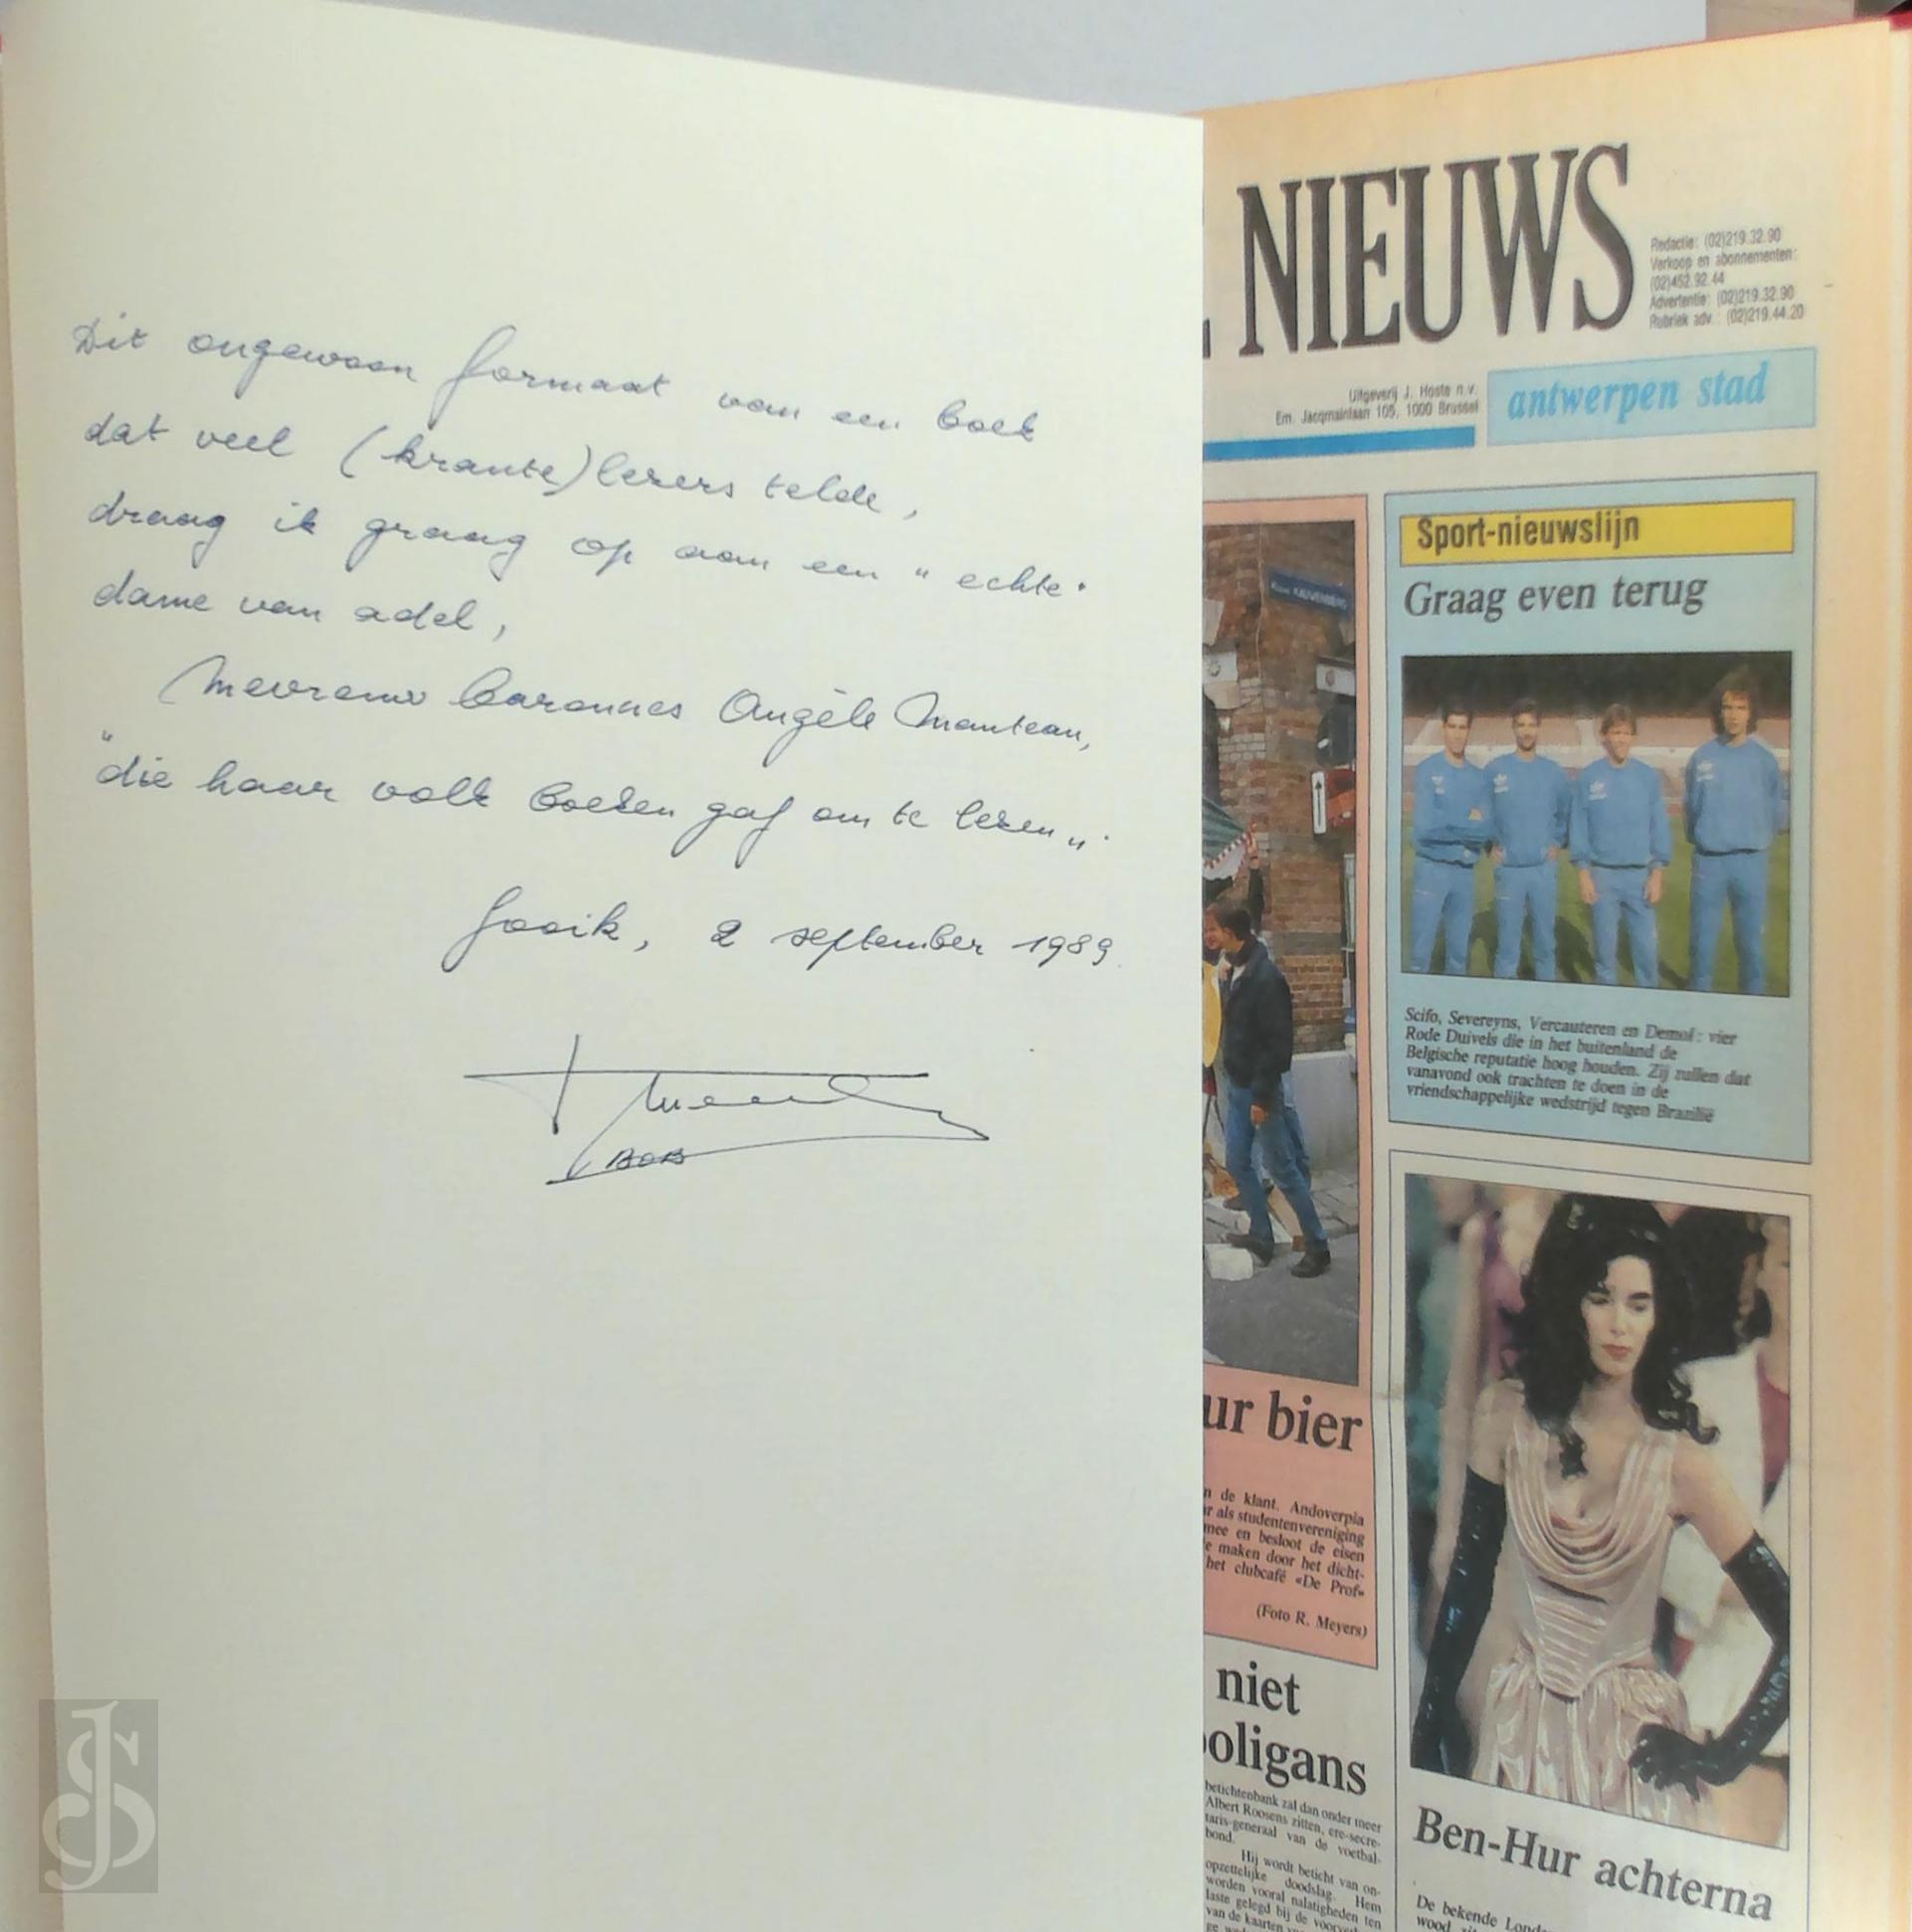 Dit ongewoon formaat van een boek
dat veel (krante)lezers telde,
draag ik graag op aan een "echte"
dame van adel,
Mevrouw Barones Angèle Manteau,
"die haar volk boeken gaf om te lezen".
Gooik, 2 september 1989
BOB
NIEUWS
Redactie: (02)219.32.90
Verkoop en abonnementen:
(02)452.92.44
Advertentie: (02)219.32.90
Rubriek adv.: (02)219.44.20
Uitgeverij J. Hoste n.v.
Em. Jacqmainlaan 105, 1000 Brussel
antwerpen stad
Sport-nieuwslijn
Graag even terug
Scifo, Severeyns, Vercauteren en Demol: vier
Rode Duivels die in het buitenland de
Belgische reputatie hoog houden. Zij zullen dat
vanavond ook trachten te doen in de
vriendschappelijke wedstrijd tegen Brazilië
ur bier
n de klant. Andoverpia
r als studentenvereniging
mee en besloot de eisen
e maken door het dicht-
het clubcafé «De Prof»
(Foto R. Meyers)
niet
ooligans
betichtenbank zal dan onder meer
Albert Roosens zitten, ere-secre-
taris-generaal van de voetbal-
bond.
Hij wordt beticht van on-
opzettelijke doodslag. Hem
worden vooral nalatigheden ten
laste gelegd bij de
van de kaarten
Ben-Hur achterna
De bekende
JS